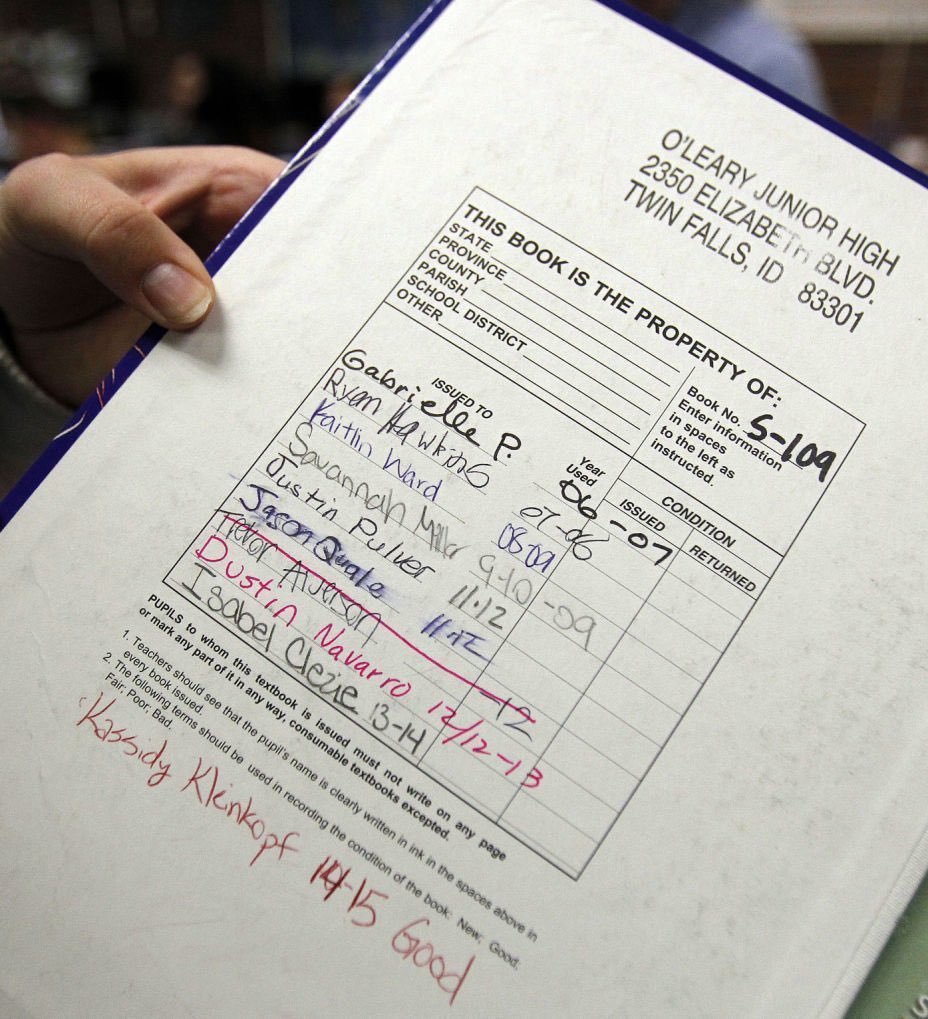 O'LEARY JUNIOR HIGH
2350 ELIZABETH BLVD.
TWIN FALLS, ID 83301
THIS BOOK IS THE PROPERTY OF:
STATE
PROVINCE
COUNTY
PARISH
SCHOOL DISTRICT
OTHER
Book No. S-109
Enter information
in spaces
to the left as
instructed.
ISSUED TO
Year
Used
CONDITION
ISSUED
RETURNED
Gabrielle P. 06-07
Ryan Hawkins 07-08
Kaitlin Ward 08-09
Savannah Miller 9-10 -09
Justin Pulver 11-12
Jason 11-12
Trevor -12
Dustin Navarro 12/12-13
Isabel 13-14
PUPILS to whom this textbook is issued must not write on any page
or mark any part of it in any way, consumable textbooks excepted.
1. Teachers should see that the pupil's name is clearly written in ink in the spaces above in
every book issued.
2. The following terms should be used in recording the condition of the book: New; Good;
Fair; Poor; Bad.
Kassidy Kleinkopf 14-15 Good